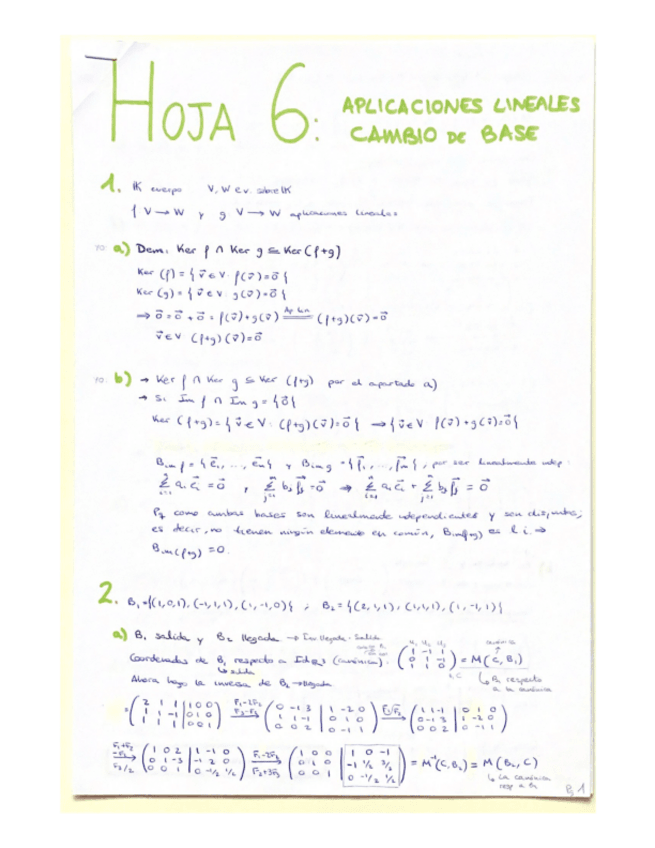 HOJA 6: APLICACIONES LINEALES
CAMBIO DE BASE
1. IK cuerpo V, W e.v. sobre IK
f V → W y g V → W aplicaciones lineales
a) Dem: Ker f ∩ Ker g ⊆ Ker (f+g)
Ker (f) = { v⃗ ∈ V: f(v⃗) = 0⃗ }
Ker (g) = { v⃗ ∈ V: g(v⃗) = 0⃗ }
⇒ 0⃗ = 0⃗ + 0⃗ = f(v⃗) + g(v⃗) = (f+g)(v⃗) = 0⃗
v⃗ ∈ V (f+g)(v⃗) = 0⃗
b) → Ker f ∩ Ker g ⊆ Ker (f+g) por el apartado a)
→ Si Im f ∩ Im g = {0⃗}
Ker (f+g) = { v⃗ ∈ V: (f+g)(v⃗) = 0⃗ } → { v⃗ ∈ V f(v⃗) + g(v⃗) = 0⃗ }
B im f = { e⃗₁, ..., e⃗n } y B im g = { f⃗₁, ..., f⃗m }, por ser linealmente indep:
Σ aᵢ e⃗ᵢ = 0⃗ , Σ bⱼ f⃗ⱼ = 0⃗ ⇒ Σ aᵢ e⃗ᵢ + Σ bⱼ f⃗ⱼ = 0⃗
Pq como ambas bases son linealmente independientes y son disjuntas,
es decir, no tienen ningún elemento en común, B im(f+g) es l.i. ⇒
B im (f+g) = 0.
2. B₁ = {(1,0,1), (-1,1,1), (1,-1,0)} ; B₂ = {(2,1,1), (1,1,1), (1,-1,1)}
a) B₁ salida y B₂ llegada → llegada - Salida
u₁ u₂ u₃ canónica
Coordenadas de B₁ respecto a Id (canónica): ( 1 -1 1 / 0 1 -1 / 1 1 0 ) = M(C, B₁)
salida
B₁ respecto
a la canónica
Ahora hago la inversa de B₂ → llegada
= ( 2 1 1 | 1 0 0 / 1 1 -1 | 0 1 0 / 1 1 1 | 0 0 1 ) F₁-2F₂ / F₃-F₂ → ( 0 -1 3 | 1 -2 0 / 1 1 -1 | 0 1 0 / 0 0 2 | 0 -1 1 ) F₁/F₂ → ( 1 1 -1 | 0 1 0 / 0 -1 3 | 1 -2 0 / 0 0 2 | 0 -1 1 )
F₁+F₂ / -F₂ / F₃/2 → ( 1 0 2 | 1 -1 0 / 0 1 -3 | -1 2 0 / 0 0 1 | 0 -1/2 1/2 ) F₁-2F₃ / F₂+3F₃ → ( 1 0 0 | 1 0 -1 / 0 1 0 | -1 1/2 3/2 / 0 0 1 | 0 -1/2 1/2 ) = M⁻¹(C, B₂) = M(B₂, C)
La canónica
resp a B₂
Pg 1